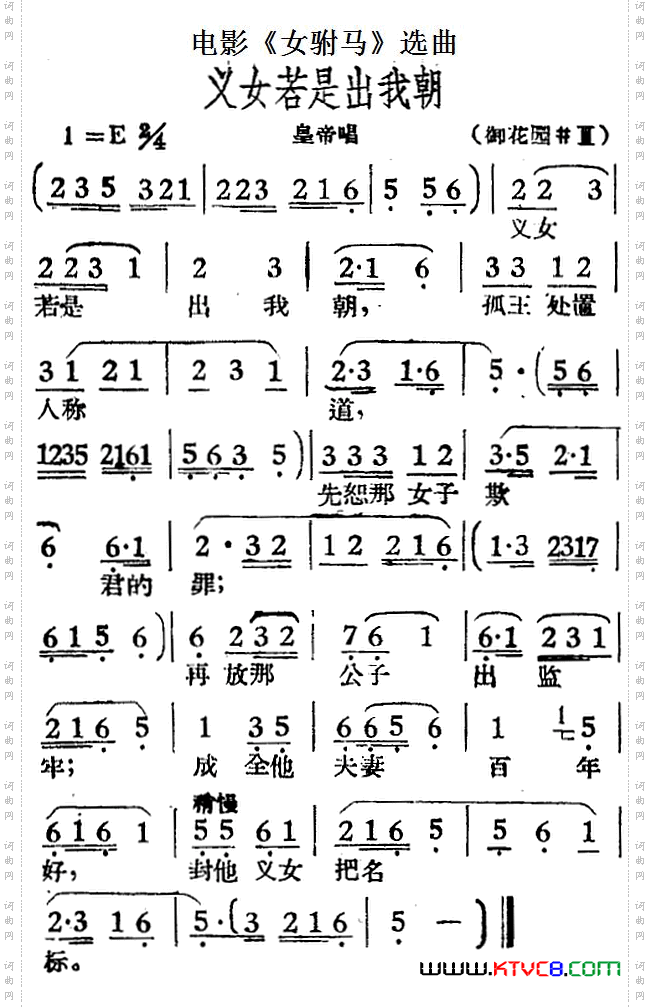 电影《女驸马》选曲
义女若是出我朝
1=E 2/4 皇帝唱 (御花园#Ⅲ)
(235 321 | 223 216 | 5 56) | 22 3
义女
2231 | 2 3 | 2·1 6 | 33 12
若是 出 我 朝, 孤王 处置
31 21 | 2 3 1 | 2·3 1·6 | 5·(56
人称 道,
1235 2161 | 5 6 3 5) | 333 12 | 3·5 2·1
先恕那 女子 欺
6 6·1 | 2·32 | 12 216 | (1·3 2317
君的 罪;
615 6) | 6 232 | 76 1 | 6·1 231
再 放那 公子 出 监
216 5 | 1 35 | 6656 | 1 1 5
牢; 成 全他 夫妻 百 年
稍慢
616 1 | 55 61 | 216 5 | 5 6 1
好, 封他 义女 把名
2·3 16 | 5·(3 216 | 5 —)‖
标。
www.KTVC8.com
词曲网